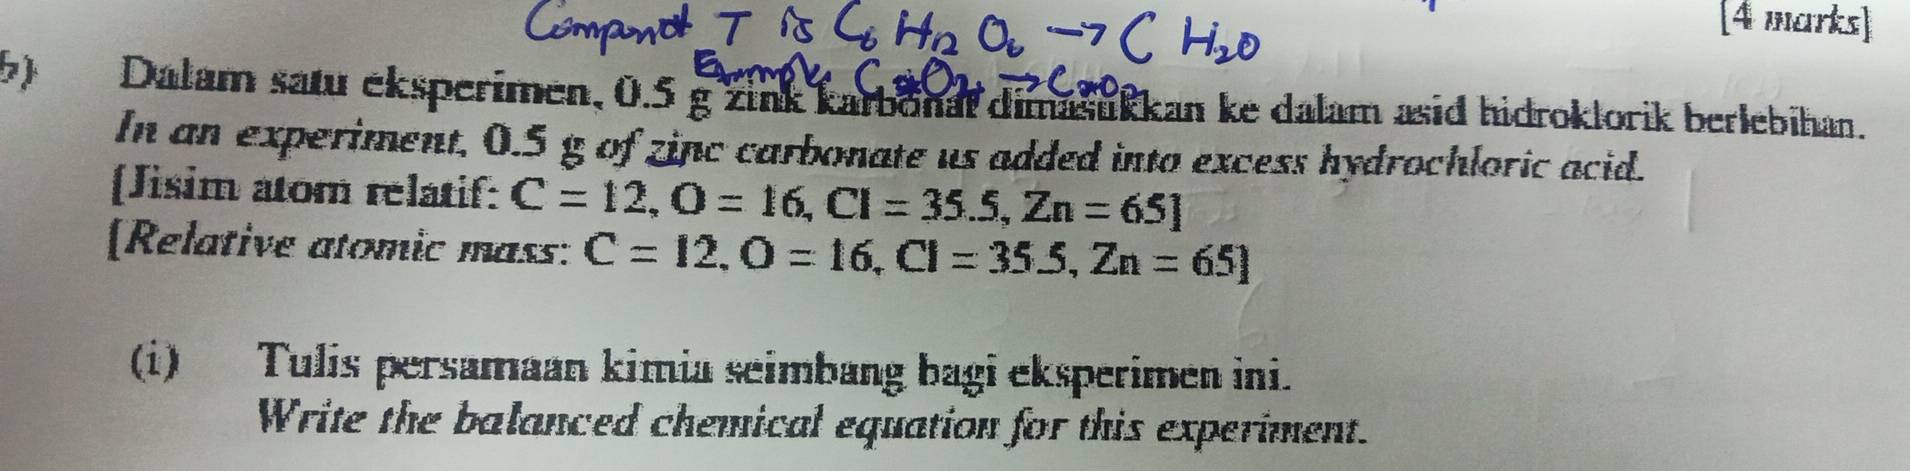 [4 marks]
Compound T is C₆ H₁₂ O₆ → C H₂O
b)
Example
Dalam satu eksperimen, 0.5 g zink karbonat dimasukkan ke dalam asid hidroklorik berlebihan.
In an experiment, 0.5 g of zinc carbonate us added into excess hydrochloric acid.
[Jisim atom relatif: C = 12, O = 16, Cl = 35.5, Zn = 65]
[Relative atomic mass: C = 12, O = 16, Cl = 35.5, Zn = 65]
(i) Tulis persamaan kimia seimbang bagi eksperimen ini.
Write the balanced chemical equation for this experiment.